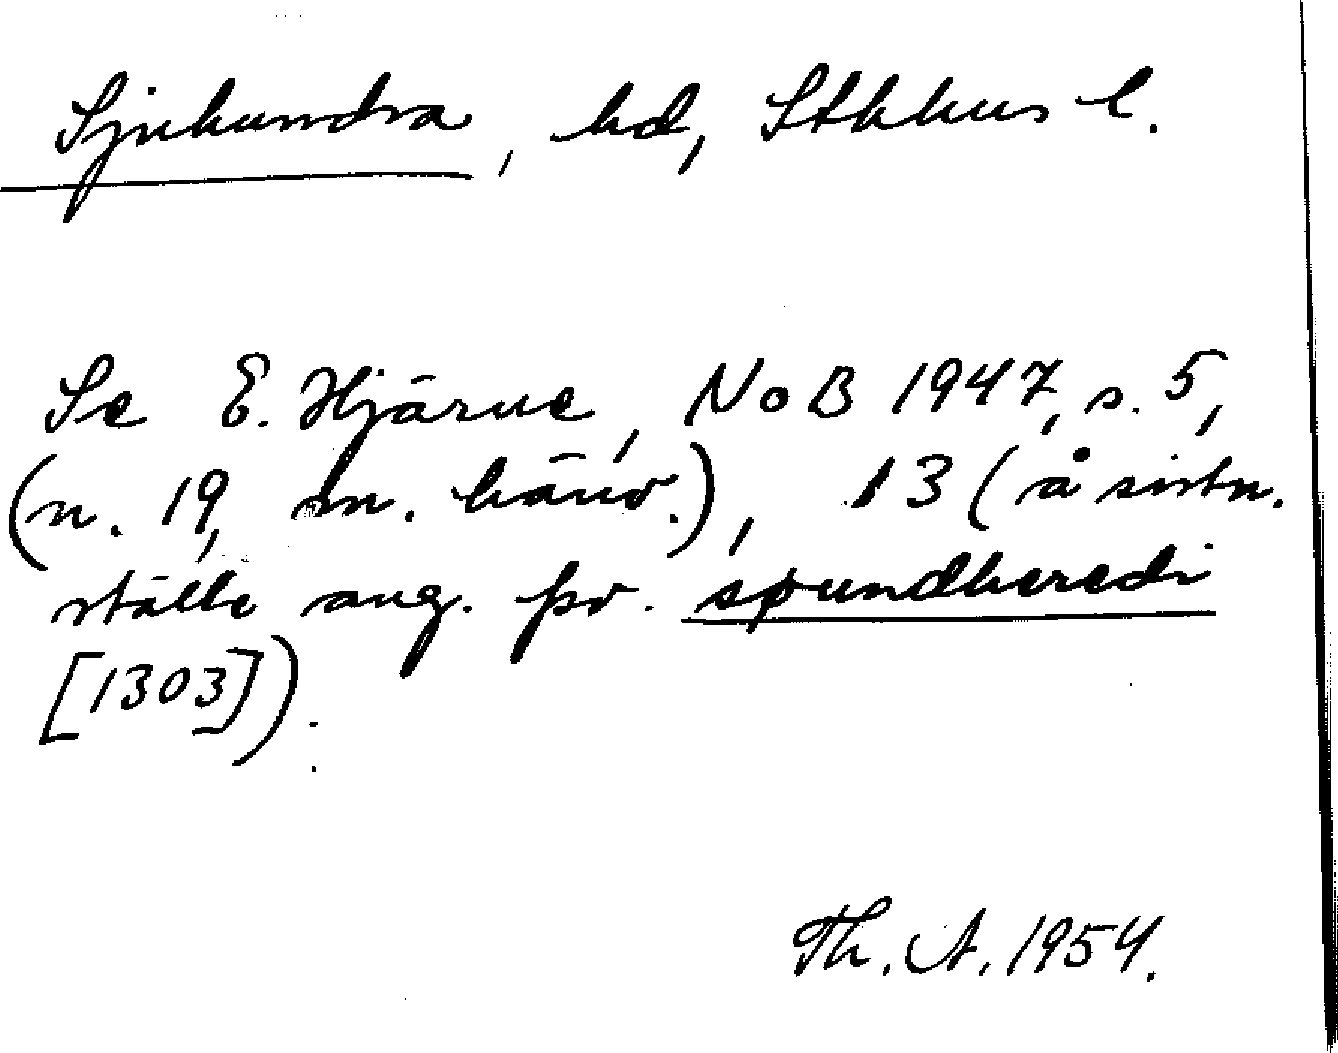 Sjuhundra, hd, Sthlms l.
Se E. Hjärne, NoB 1947, s. 5,
(n. 19, m. hänv.), 13 (å sistn.
ställe ang. fsv. spundheredi
[1303]).
Th. A. 1954.